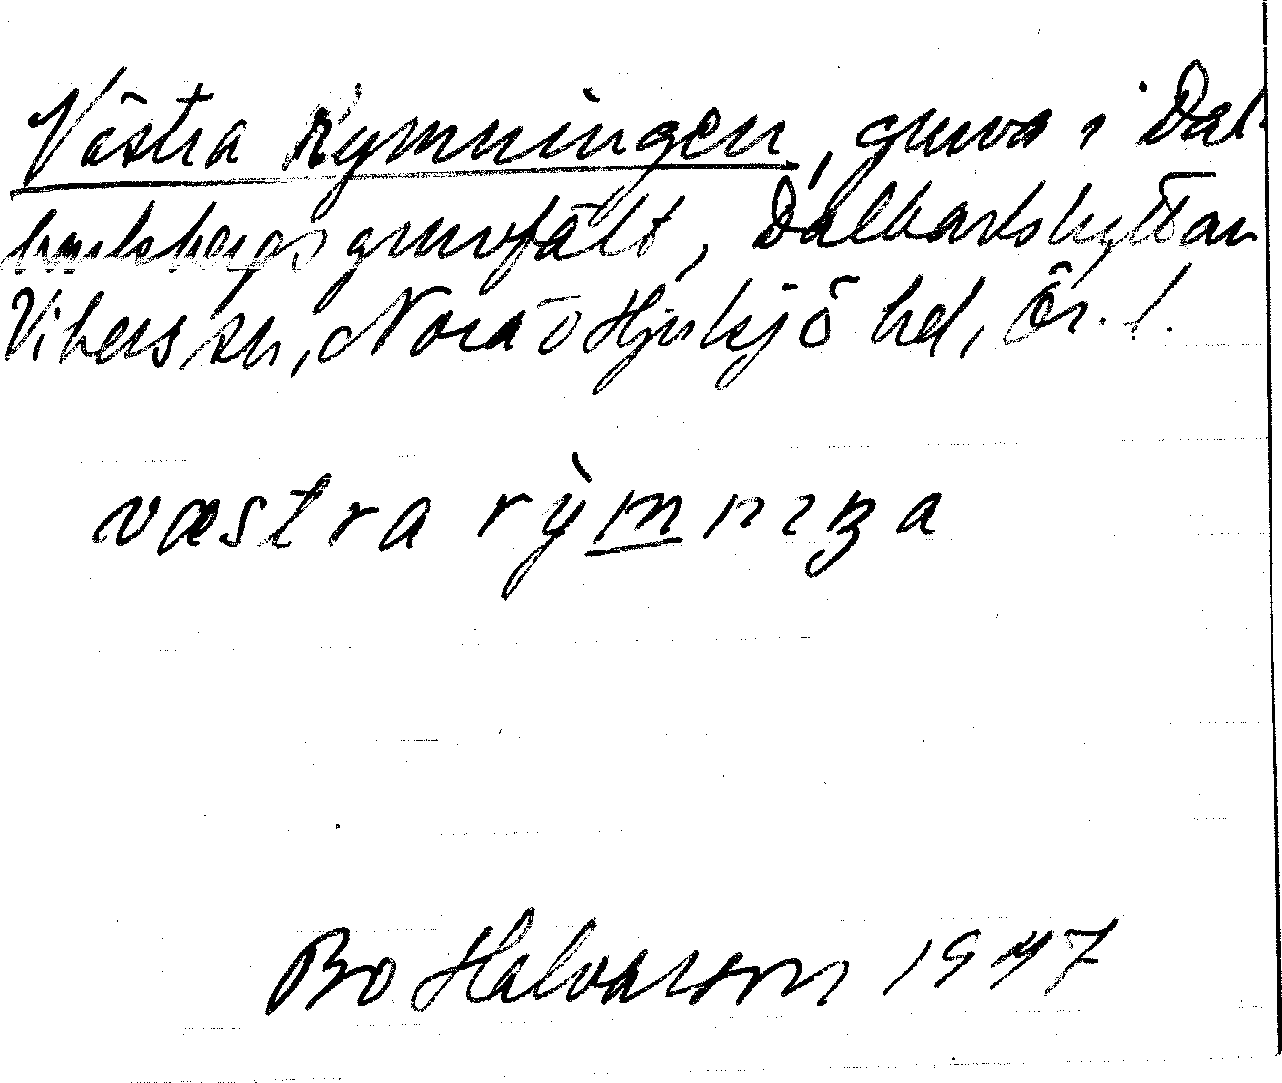 Västra Rymningen, gruva i Dal-
karlsbergs gruvfält, Dalkarlshyttan
Vikers sn, Nora o Hjulsjö hd, Ör. l.
væstra rỳmnıŋa
Bo Halvarson 1947